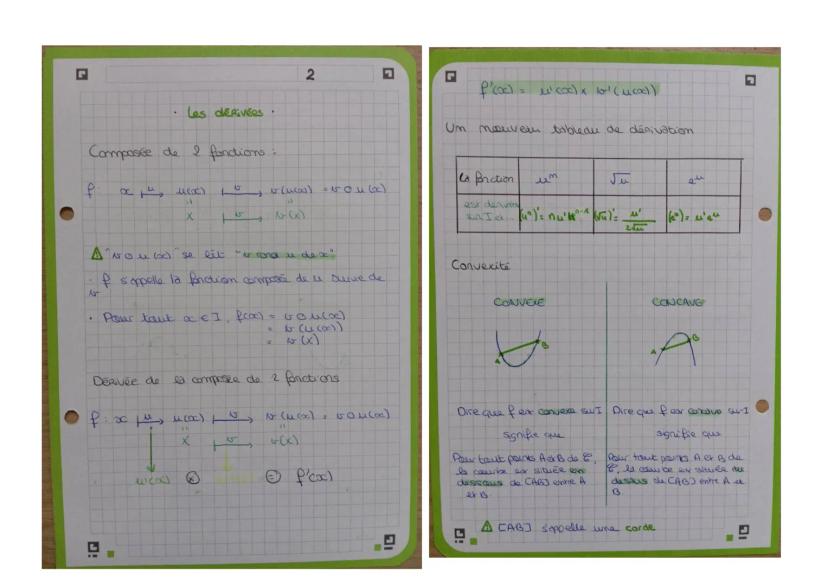 2
· Les dérivées ·
Composée de 2 fonctions :
f: x ⟼u u(x) ⟼v v(u(x)) = v o u(x)
X ⟼v v(X)
⚠ "v o u (x)" se lit "v rond u de x"
· f s'appelle la fonction composée de u suivie de
v
· Pour tout x ∈ I, f(x) = v o u(x)
= v (u(x))
= v (X)
Dérivée de la composée de 2 fonctions
f: x ⟼u u(x) ⟼v v(u(x)) = v o u(x)
X ⟼v v(X)
u'(x) × = f'(x)
f'(x) = u'(x) x v'(u(x))
Un nouveau tableau de dérivation
la fonction uⁿ √u eᵘ
est dérivable
sur I et... (uⁿ)' = nu'uⁿ⁻¹ (√u)' = u'/2√u (eᵘ)' = u'eᵘ
Convexité
CONVEXE CONCAVE
A B A B
Dire que f est convexe sur I
signifie que
Pour tout points A et B de ℰ,
la courbe est située en
dessous de [AB] entre A
et B
Dire que f est concave sur I
signifie que
Pour tout points A et B de
ℰ, la courbe est située au
dessus de [AB] entre A et
B
⚠ [AB] s'appelle une corde